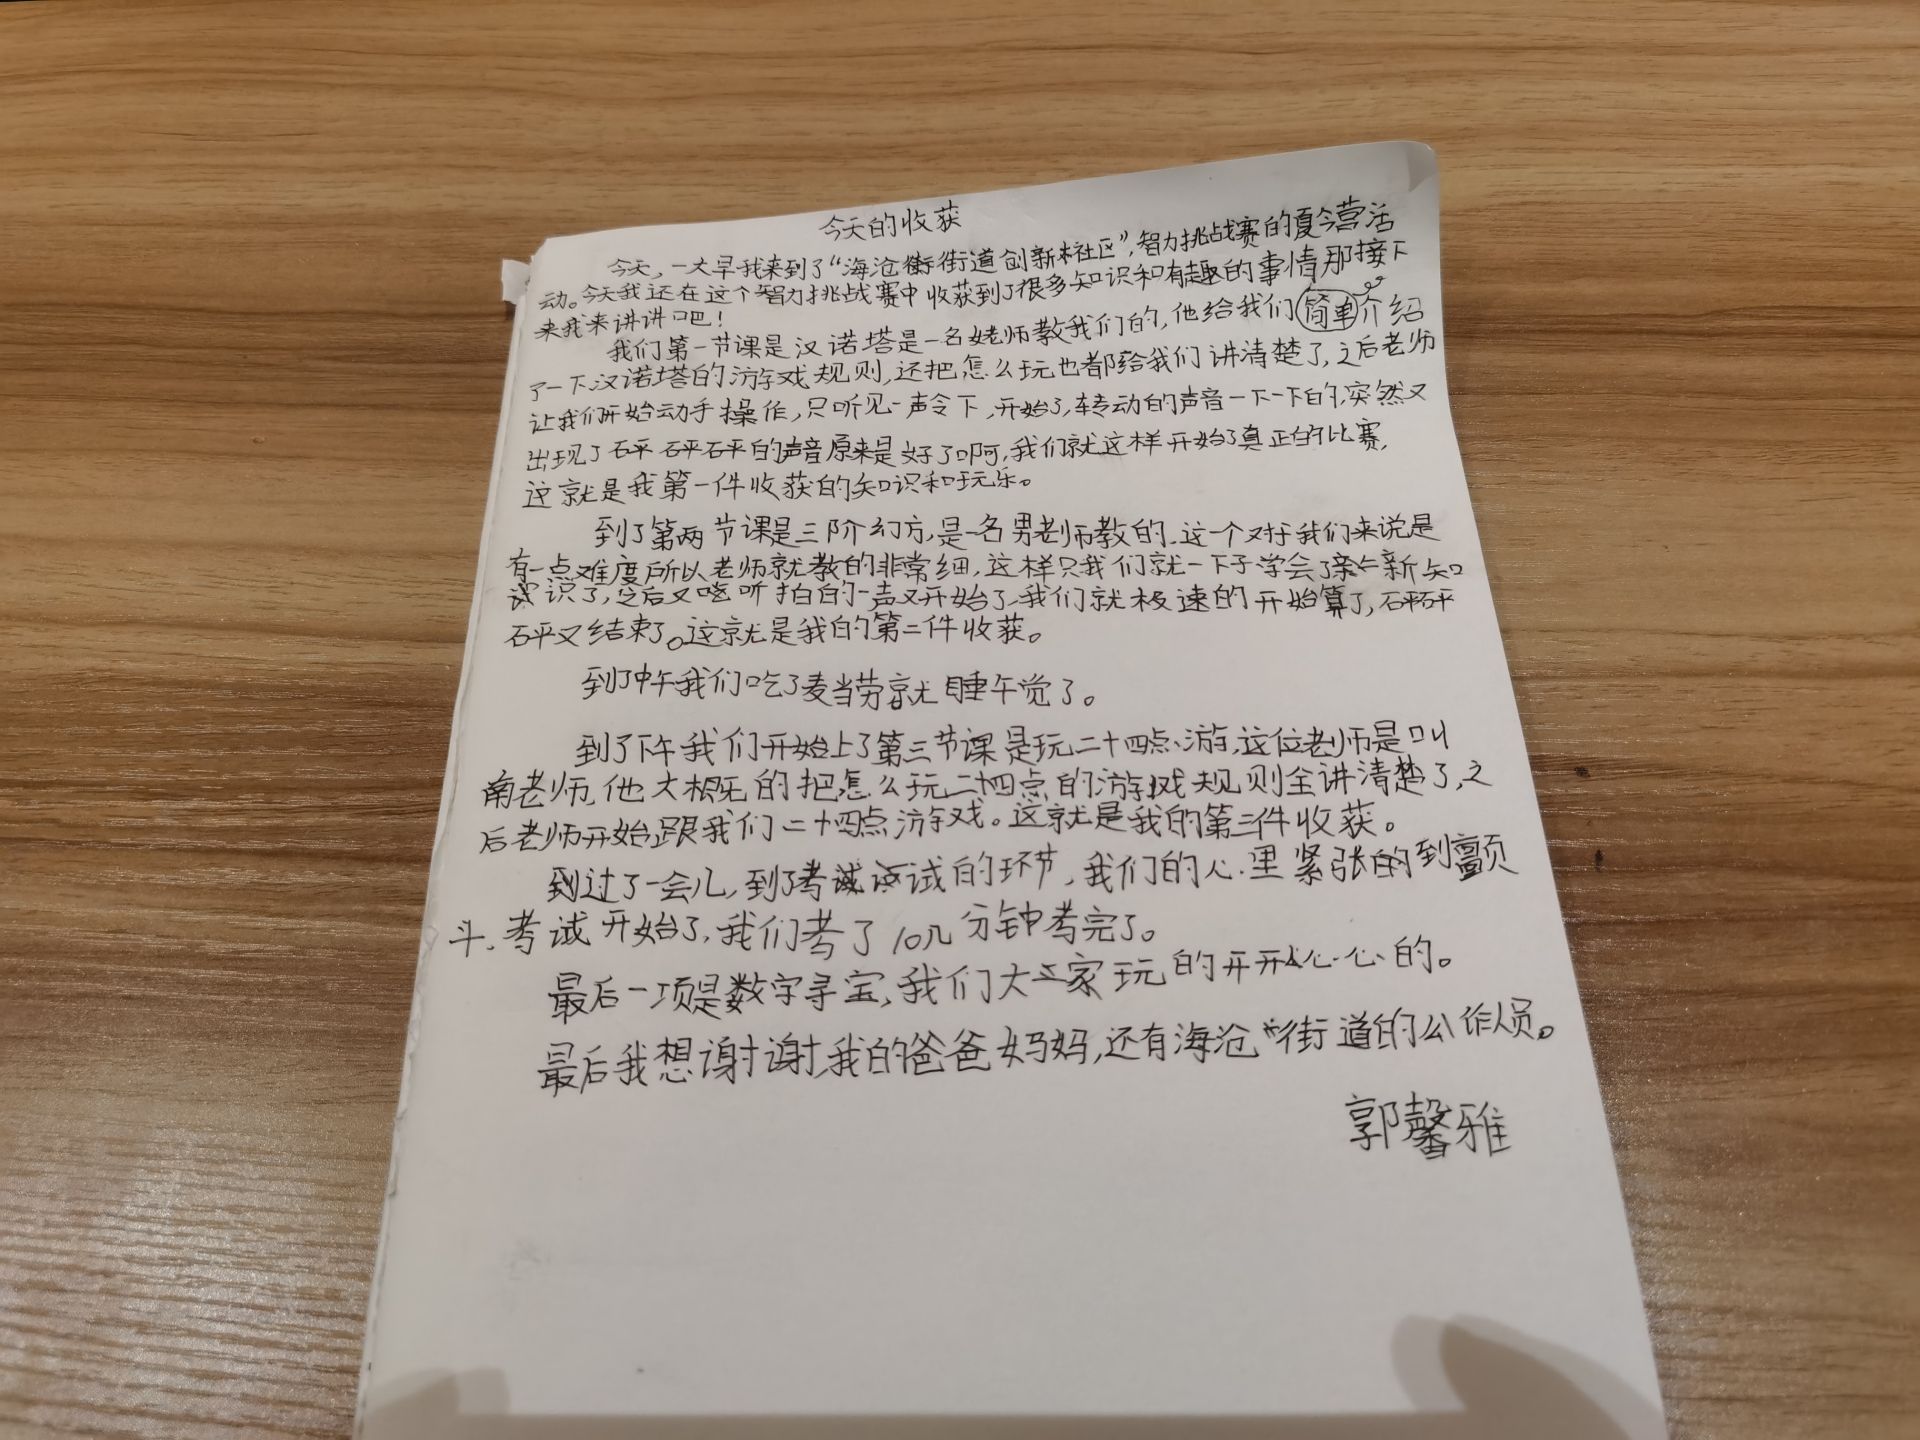 今天的收获
今天，一大早我来到了“海沧街街道创新社区”，智力挑战赛的夏令营活
动。今天我还在这个智力挑战赛中收获到了很多知识和有趣的事情那接下
来我来讲讲吧！
我们第一节课是汉诺塔是一名姥师教我们的，他给我们简单介绍
了一下汉诺塔的游戏规则，还把怎么玩也都给我们讲清楚了，之后老师
让我们开始动手操作，只听见一声令下，开始了，转动的声音一下一下的，突然又
出现了砰砰砰的声音原来是好了啊，我们就这样开始了真正的比赛，
这就是我第一件收获的知识和玩乐。
到了第两节课是三阶幻方，是一名男老师教的，这一个对于我们来说是
有一点难度所以老师就教的非常细，这样只我们就一下子学会了新知
识了，之后又听拍的一声又开始了，我们就极速的开始算了，砰砰
砰又结束了。这就是我的第二件收获。
到了中午我们吃了麦当劳就睡午觉了。
到了下午我们开始上了第三节课是玩二十四点游，这位老师是叫
南老师，他大概的把怎么玩二十四点的游戏规则全讲清楚了，之
后老师开始跟我们二十四点游戏。这就是我的第三件收获。
到过了一会儿，到了考试的环节，我们的心里紧张的到颤
斗，考试开始了，我们考了10几分钟考完了。
最后一项是数字寻宝，我们大家玩的开开心心的。
最后我想谢谢，我的爸爸妈妈，还有海沧街道的公作人员。
郭馨雅